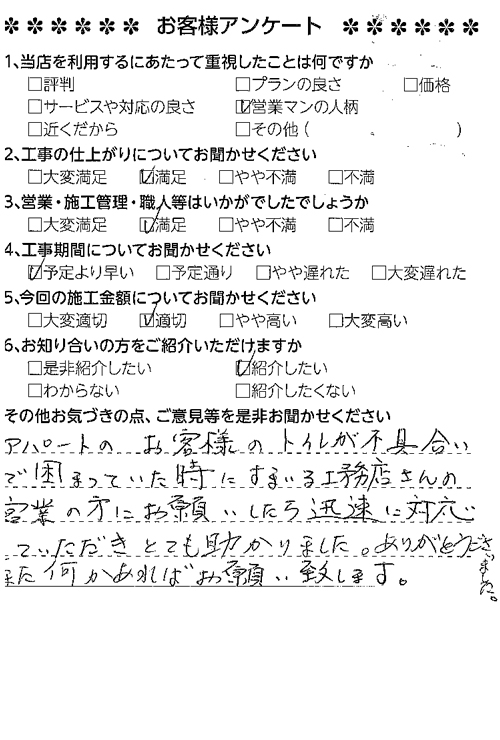 ✽✽✽✽✽✽ お客様アンケート ✽✽✽✽✽✽
1、当店を利用するにあたって重視したことは何ですか
□評判 □プランの良さ □価格
□サービスや対応の良さ ☑営業マンの人柄
□近くだから □その他 ( )
2、工事の仕上がりについてお聞かせください
□大変満足 ☑満足 □やや不満 □不満
3、営業・施工管理・職人等はいかがでしたでしょうか
□大変満足 ☑満足 □やや不満 □不満
4、工事期間についてお聞かせください
☑予定より早い □予定通り □やや遅れた □大変遅れた
5、今回の施工金額についてお聞かせください
□大変適切 ☑適切 □やや高い □大変高い
6、お知り合いの方をご紹介いただけますか
□是非紹介したい ☑紹介したい
□わからない □紹介したくない
その他お気づきの点、ご意見等を是非お聞かせください
アパートの お客様のトイレが不具合い
で困まっていた時にすまいる工務店さんの
営業の方にお願いしたら迅速に対応し
ていただきとても助かりました。ありがとうございました。
また何かあればお願い致します。